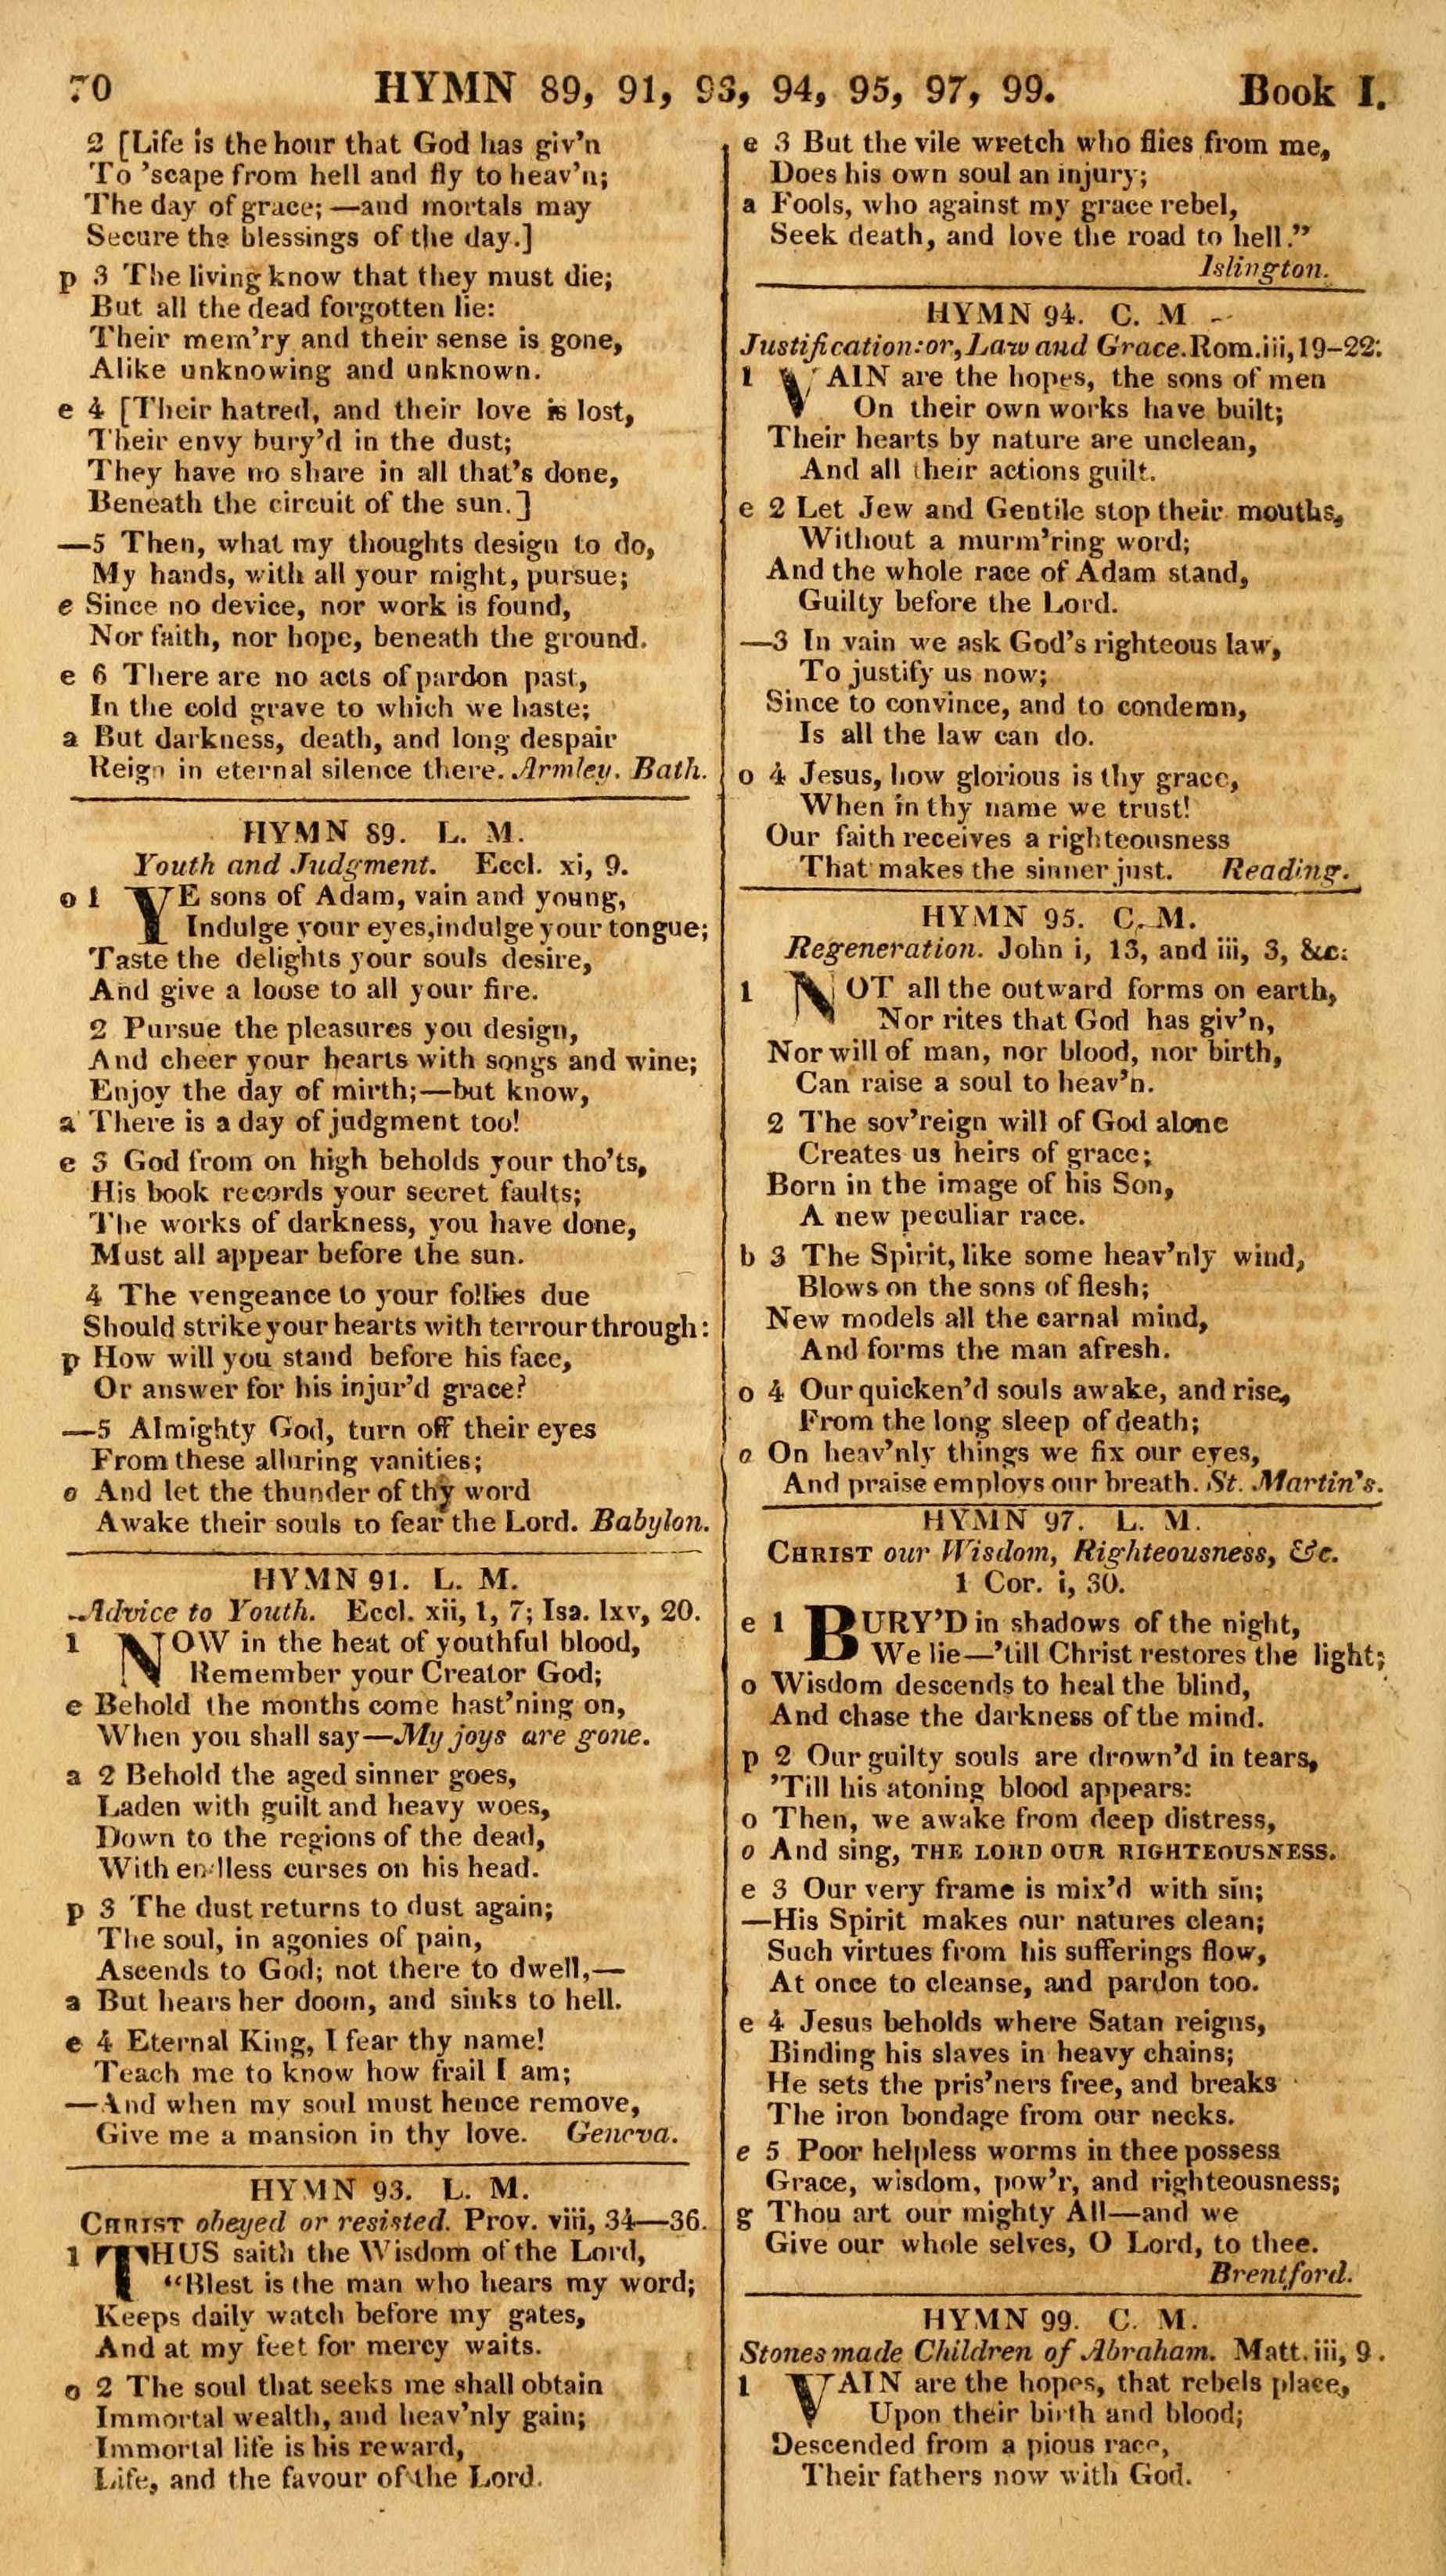 70 HYMN 89, 91, 93, 94, 95, 97, 99. Book I.
2 [Life is the hour that God has giv'n
To 'scape from hell and fly to heav'n;
The day of grace;—and mortals may
Secure the blessings of the day.]
p 3 The living know that they must die;
But all the dead forgotten lie:
Their mem'ry and their sense is gone,
Alike unknowing and unknown.
e 4 [Their hatred, and their love is lost,
Their envy bury'd in the dust;
They have no share in all that's done,
Beneath the circuit of the sun.]
—5 Then, what my thoughts design to do,
My hands, with all your might, pursue;
e Since no device, nor work is found,
Nor faith, nor hope, beneath the ground.
e 6 There are no acts of pardon past,
In the cold grave to which we haste;
a But darkness, death, and long despair
Reign in eternal silence there. Armley. Bath.
HYMN 89. L. M.
Youth and Judgment. Eccl. xi, 9.
o 1 YE sons of Adam, vain and young,
Indulge your eyes, indulge your tongue;
Taste the delights your souls desire,
And give a loose to all your fire.
2 Pursue the pleasures you design,
And cheer your hearts with songs and wine;
Enjoy the day of mirth;—but know,
a There is a day of judgment too!
e 3 God from on high beholds your tho'ts,
His book records your secret faults;
The works of darkness, you have done,
Must all appear before the sun.
4 The vengeance to your follies due
Should strike your hearts with terrour through:
p How will you stand before his face,
Or answer for his injur'd grace?
—5 Almighty God, turn off their eyes
From these alluring vanities;
o And let the thunder of thy word
Awake their souls to fear the Lord. Babylon.
HYMN 91. L. M.
Advice to Youth. Eccl. xii, 1, 7; Isa. lxv, 20.
1 NOW in the heat of youthful blood,
Remember your Creator God;
e Behold the months come hast'ning on,
When you shall say—My joys are gone.
a 2 Behold the aged sinner goes,
Laden with guilt and heavy woes,
Down to the regions of the dead,
With endless curses on his head.
p 3 The dust returns to dust again;
The soul, in agonies of pain,
Ascends to God; not there to dwell,—
a But hears her doom, and sinks to hell.
e 4 Eternal King, I fear thy name!
Teach me to know how frail I am;
—And when my soul must hence remove,
Give me a mansion in thy love. Geneva.
HYMN 93. L. M.
CHRIST obeyed or resisted. Prov. viii, 34—36.
1 THUS saith the Wisdom of the Lord,
"Blest is the man who hears my word;
Keeps daily watch before my gates,
And at my feet for mercy waits.
o 2 The soul that seeks me shall obtain
Immortal wealth, and heav'nly gain;
Immortal life is his reward,
Life, and the favour of the Lord.
e 3 But the vile wretch who flies from me,
Does his own soul an injury;
a Fools, who against my grace rebel,
Seek death, and love the road to hell."
Islington.
HYMN 94. C. M
Justification: or, Law and Grace. Rom. iii, 19-22.
1 VAIN are the hopes, the sons of men
On their own works have built;
Their hearts by nature are unclean,
And all their actions guilt.
e 2 Let Jew and Gentile stop their mouths,
Without a murm'ring word;
And the whole race of Adam stand,
Guilty before the Lord.
—3 In vain we ask God's righteous law,
To justify us now;
Since to convince, and to condemn,
Is all the law can do.
o 4 Jesus, how glorious is thy grace,
When in thy name we trust!
Our faith receives a righteousness
That makes the sinner just. Reading.
HYMN 95. C. M.
Regeneration. John i, 13, and iii, 3, &c.
1 NOT all the outward forms on earth,
Nor rites that God has giv'n,
Nor will of man, nor blood, nor birth,
Can raise a soul to heav'n.
2 The sov'reign will of God alone
Creates us heirs of grace;
Born in the image of his Son,
A new peculiar race.
b 3 The Spirit, like some heav'nly wind,
Blows on the sons of flesh;
New models all the carnal mind,
And forms the man afresh.
o 4 Our quicken'd souls awake, and rise,
From the long sleep of death;
o On heav'nly things we fix our eyes,
And praise employs our breath. St. Martin's.
HYMN 97. L. M.
CHRIST our Wisdom, Righteousness, &c.
1 Cor. i, 30.
e 1 BURY'D in shadows of the night,
We lie—'till Christ restores the light;
o Wisdom descends to heal the blind,
And chase the darkness of the mind.
p 2 Our guilty souls are drown'd in tears,
'Till his atoning blood appears:
o Then, we awake from deep distress,
o And sing, THE LORD OUR RIGHTEOUSNESS.
e 3 Our very frame is mix'd with sin;
—His Spirit makes our natures clean;
Such virtues from his sufferings flow,
At once to cleanse, and pardon too.
e 4 Jesus beholds where Satan reigns,
Binding his slaves in heavy chains;
He sets the pris'ners free, and breaks
The iron bondage from our necks.
e 5 Poor helpless worms in thee possess
Grace, wisdom, pow'r, and righteousness;
g Thou art our mighty All—and we
Give our whole selves, O Lord, to thee.
Brentford.
HYMN 99. C. M.
Stones made Children of Abraham. Matt. iii, 9.
1 VAIN are the hopes, that rebels place,
Upon their birth and blood;
Descended from a pious race,
Their fathers now with God.